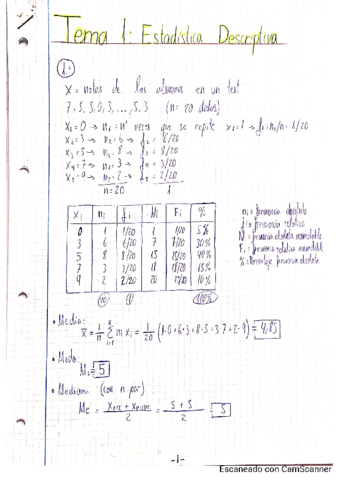 Tema 1: Estadística Descriptiva
1.-
X = notas de los alumnos en un test
7, 5, 5, 0, 3, ..., 5, 3 (n = 20 datos)
x₁ = 0 → n₁ = nº veces que se repite x₁ = 1 → f₁ = n₁/n = 1/20
x₂ = 3 → n₂ = 6 → f₂ = 6/20
x₃ = 5 → n₃ = 8 → f₃ = 8/20
x₄ = 7 → n₄ = 3 → f₄ = 3/20
x₅ = 9 → n₅ = 2 → f₅ = 2/20
n = 20 1
xᵢ nᵢ fᵢ Nᵢ Fᵢ %
0 1 1/20 1 1/20 5%
3 6 6/20 7 7/20 30%
5 8 8/20 15 15/20 40%
7 3 3/20 18 18/20 15%
9 2 2/20 20 20/20 10%
20 1 100%
nᵢ = frecuencia absoluta
fᵢ = frecuencia relativa
Nᵢ = frecuencia absoluta acumulable
Fᵢ = frecuencia relativa acumulable
% = Porcentaje frecuencia absoluta
• Media:
x̄ = 1/n Σ nᵢ xᵢ = 1/20 (1·0 + 6·3 + 8·5 + 3·7 + 2·9) = 4,85
• Moda:
M₀ = 5
• Mediana (con n par)
Me = = 5 + 5 / 2 = 5
-1-
Escaneado con CamScanner